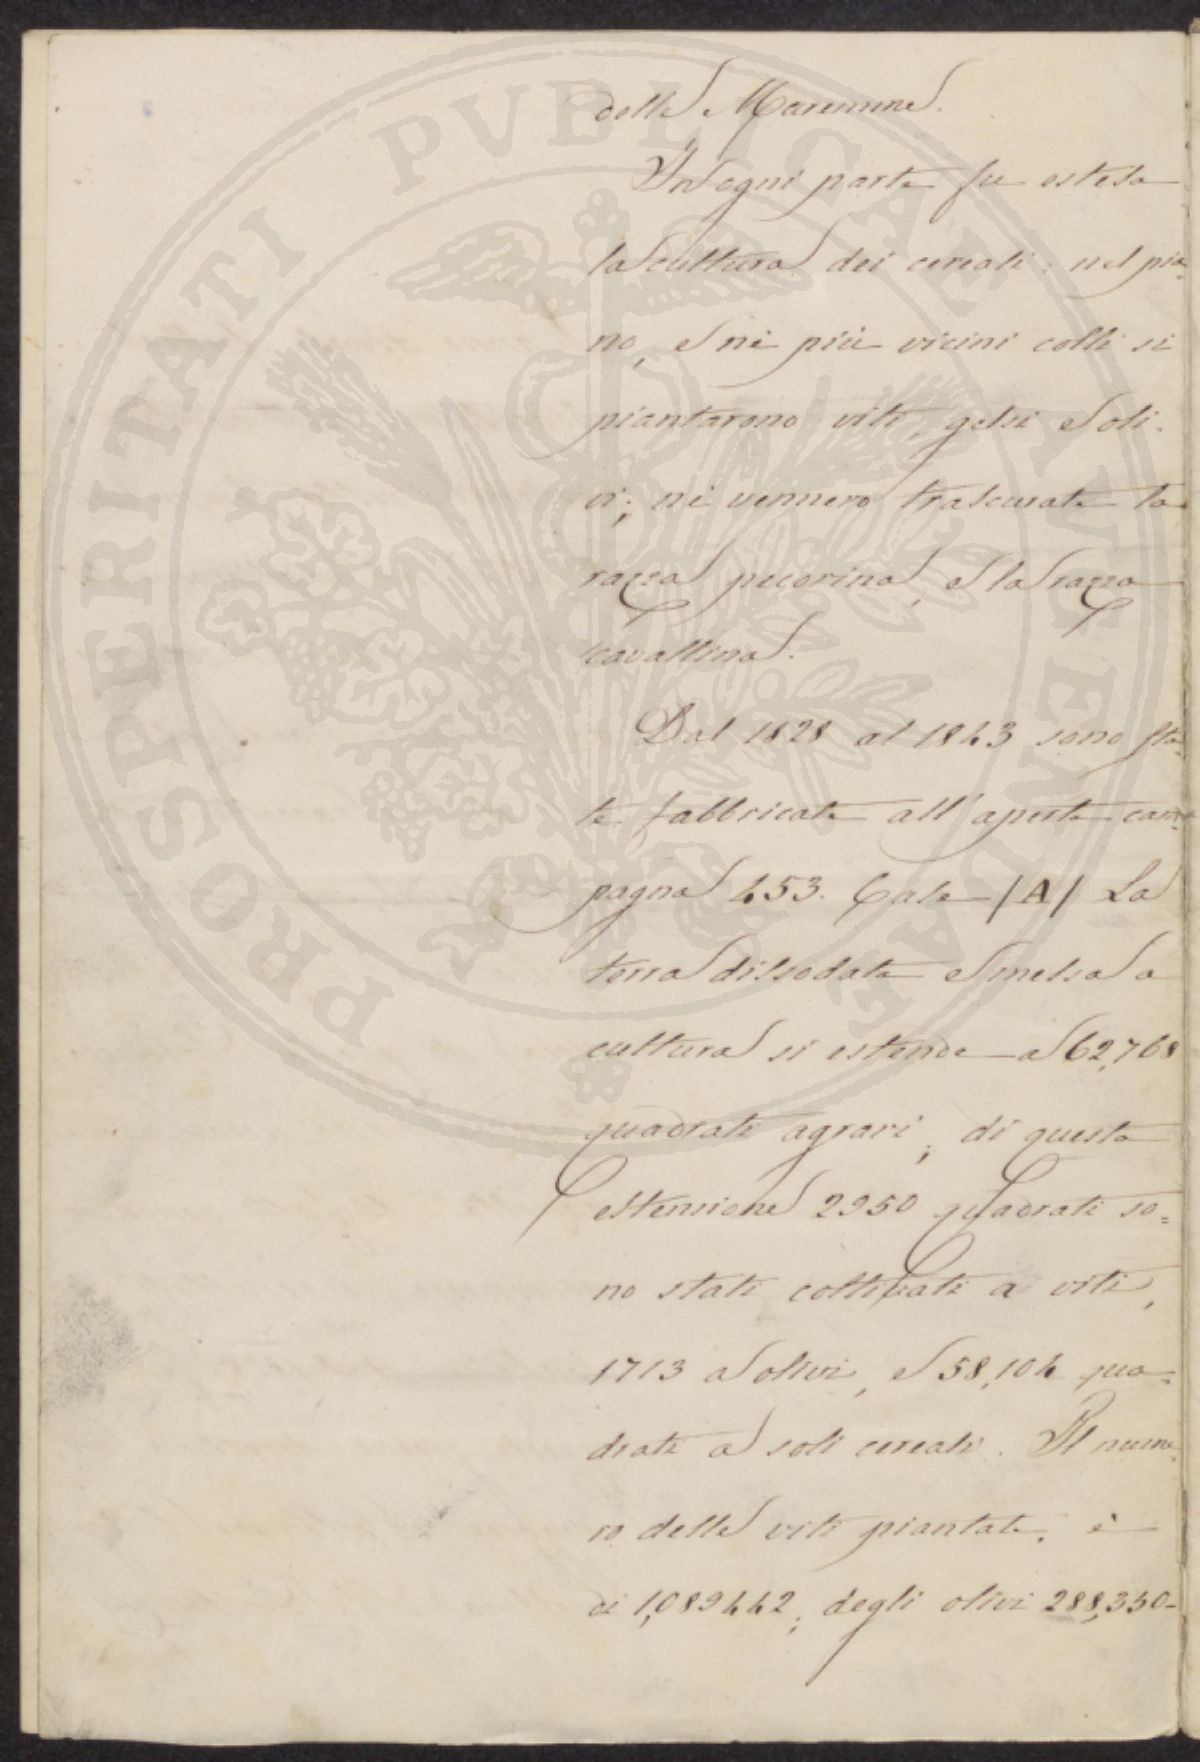 delle Maremme.
In ogni parte fu estesa
la cultura dei cereali: nel pia-
no, e ne più vicini colli si
piantarono viti, gelsi e oli-
vi; nè vennero trascurate la
razza pecorina, e la razza
cavallina.
Dal 1828 al 1843 sono sta-
te fabbricate all'aperta cam-
pagna 453. Case /A/ La
terra dissodata e messa a
cultura si estende a 62,768
quadrati agrari; di questa
estensione 2950 quadrati so=
no stati coltivati a viti,
1713 a olivi, e 58,104 qua-
drati a soli cereali. Il nume-
ro delle viti piantate, è
di 1,089442; degli olivi 288,350-
PROSPERITATI PVBLICAE AVGENDAE